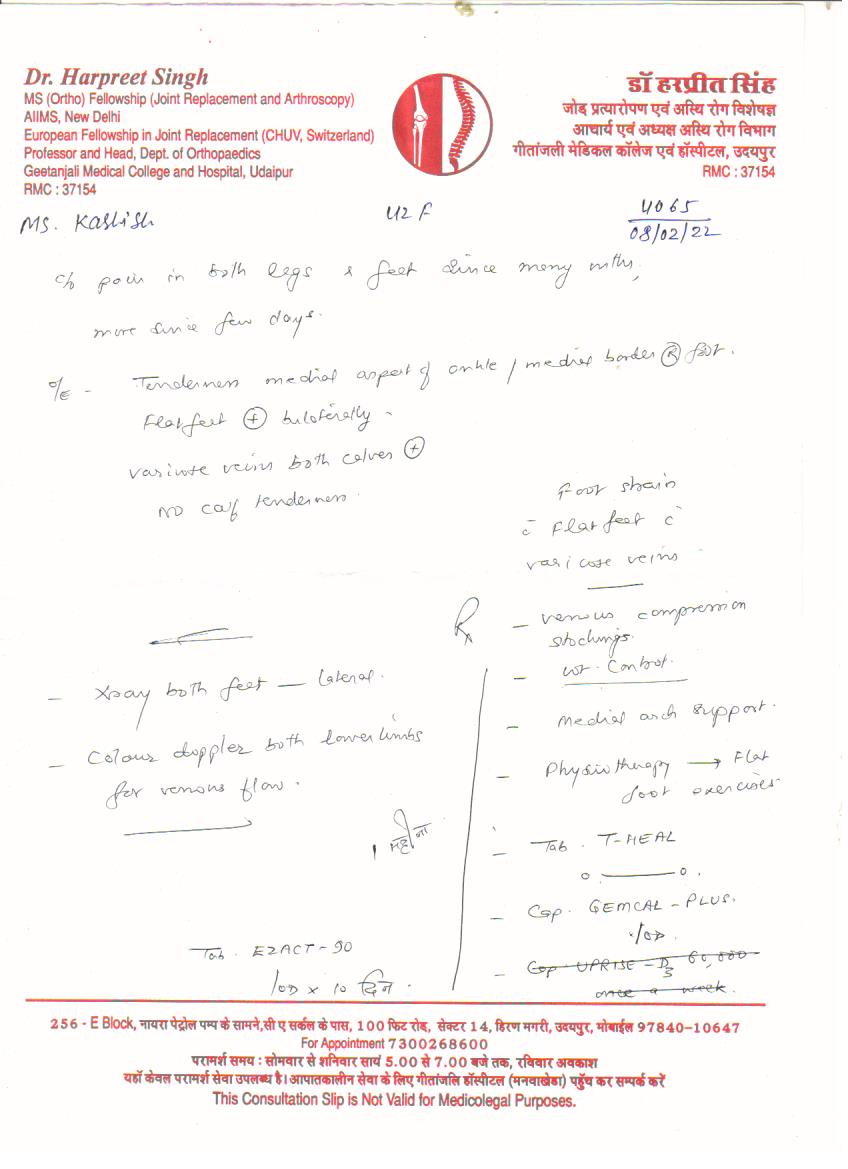 Dr. Harpreet Singh
MS (Ortho) Fellowship (Joint Replacement and Arthroscopy)
AIIMS, New Delhi
European Fellowship in Joint Replacement (CHUV, Switzerland)
Professor and Head, Dept. of Orthopaedics
Geetanjali Medical College and Hospital, Udaipur
RMC : 37154
डॉ हरप्रीत सिंह
जोड़ प्रत्यारोपण एवं अस्थि रोग विशेषज्ञ
आचार्य एवं अध्यक्ष अस्थि रोग विभाग
गीतांजली मेडिकल कॉलेज एवं हॉस्पीटल, उदयपुर
RMC : 37154
Ms. Kashish 42 F 4065
08/02/22
c/o pain in both legs & feet since many mths,
more since few days.
O/E - Tenderness medial aspect of ankle / medial border Ⓡ foot.
Flat feet ⊕ bilaterally -
varicose veins both calves ⊕
NO calf tenderness.
Foot strain
c̄ Flat feet c̄
varicose veins
- Xray both feet — lateral.
- Colour doppler both lower limbs
for venous flow.
1 महीना
Tab. EZACT-90
1OD x 10 दिन.
Rx
- venous compression
stockings.
- wt. Control.
- Medial arch support.
- Physiotherapy → Flat
foot exercises.
- Tab. T-HEAL
o ——— o.
- Cap. GEMCAL-PLUS.
1OD.
- Cap UPRISE-D3 60,000
once a week.
256 - E Block, नायरा पेट्रोल पम्प के सामने,सी ए सर्कल के पास, 100 फिट रोड, सेक्टर 14, हिरण मगरी, उदयपुर, मोबाईल 97840-10647
For Appointment 7300268600
परामर्श समय : सोमवार से शनिवार सायं 5.00 से 7.00 बजे तक, रविवार अवकाश
यहाँ केवल परामर्श सेवा उपलब्ध है। आपातकालीन सेवा के लिए गीतांजलि हॉस्पीटल (मनवाखेडा) पहुँच कर सम्पर्क करें
This Consultation Slip is Not Valid for Medicolegal Purposes.